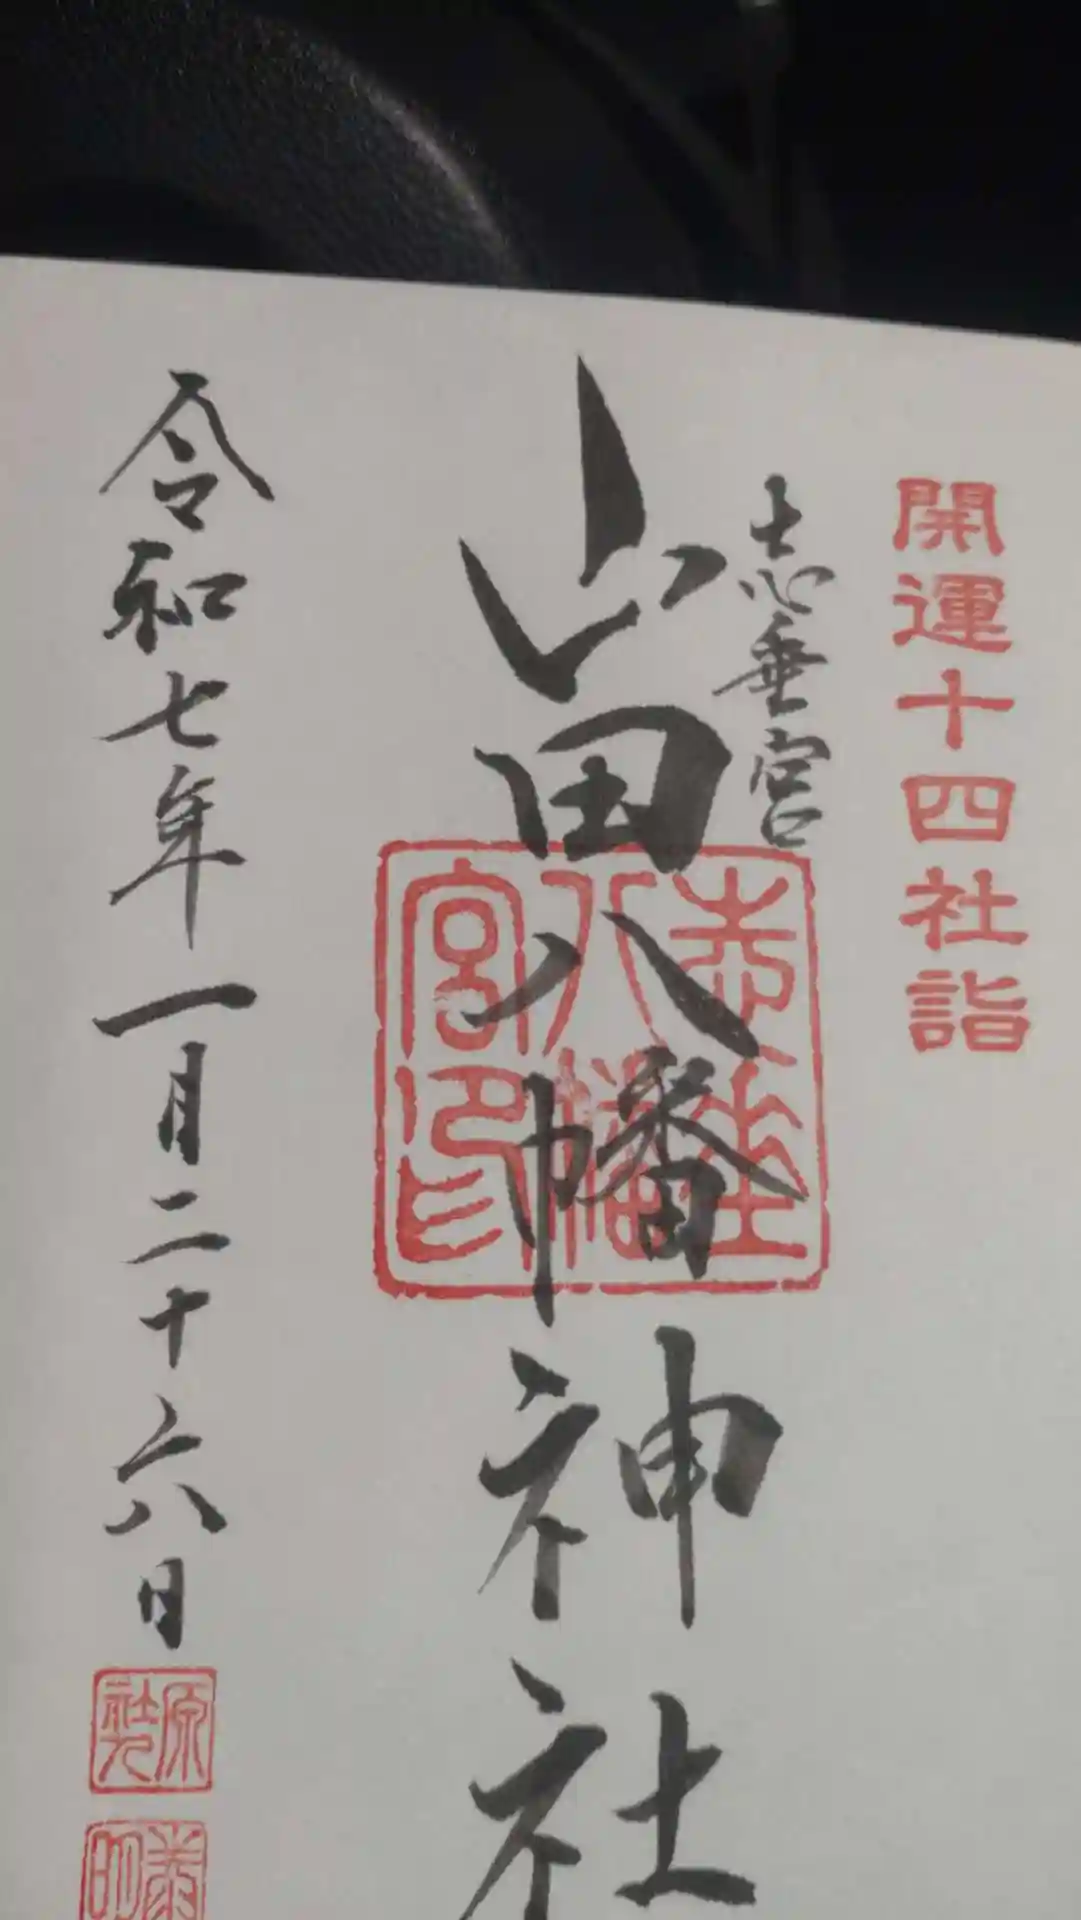 開運十四社詣
志垂宮
山田八幡神社
赤垂八幡宮印
令和七年一月二十六日